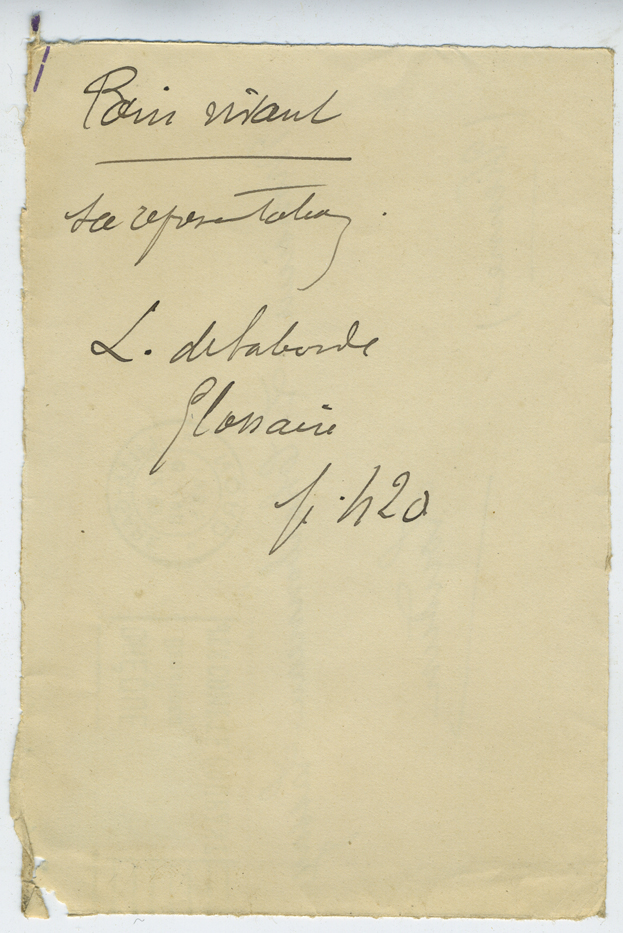 Pain vivant
sa representation.
L. de Laborde
Glossaire
p. 420